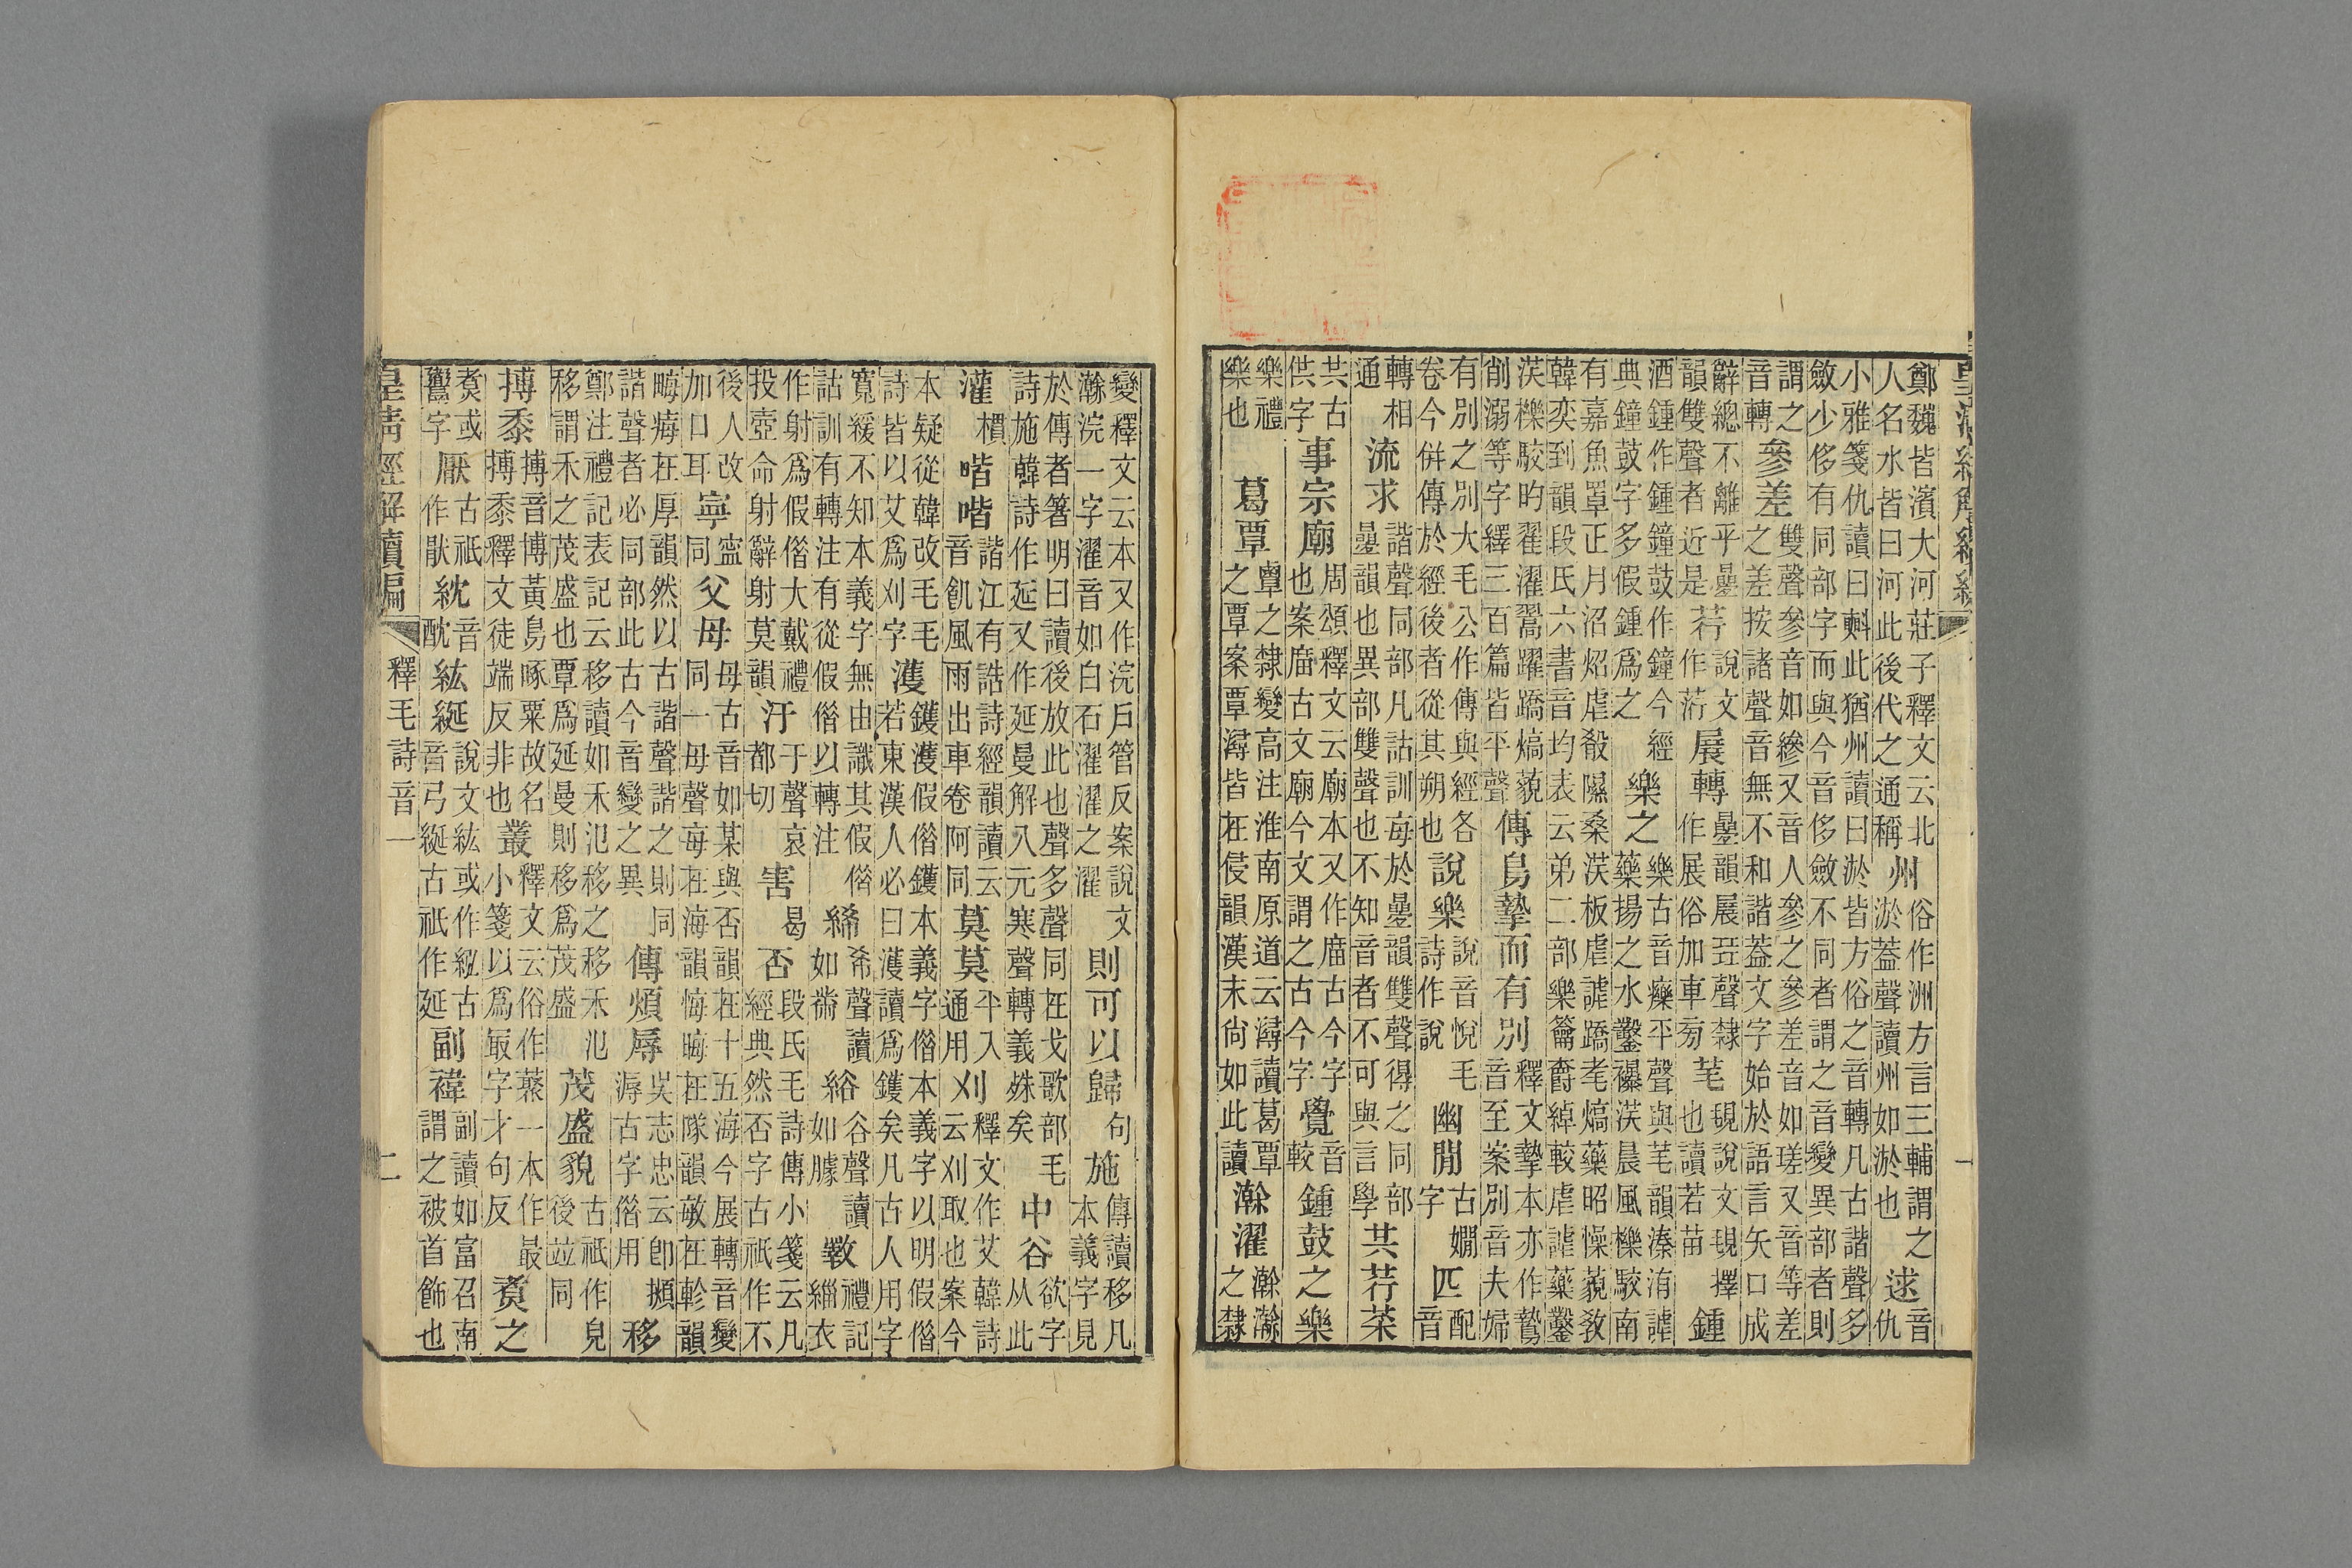 鄭魏皆濱大河莊子釋文云北人名水皆曰河此後代之通稱州俗作洲方言三輔謂之淤蓋聲讀州如淤也逑音仇
小雅箋仇讀曰㪺此猶州讀曰淤皆方俗之音轉凡古諧聲多斂少侈有同部字而與今音侈斂不同者謂之音變異部者則
謂之音轉參差雙聲參音如縿又音人參之參差音如瑳又音等差之差按諸聲音無不和諧葢文字始於語言矢口成
辭總不離乎曡韻雙聲者近是荇說文作莕展轉曡韻展㠭聲隸作展俗加車㫄芼覒說文覒擇也讀若苗鍾
酒鍾作鍾鐘鼓作鐘今經典鐘鼓字多假鍾爲之樂之樂古音癳平聲與芼韻溱洧謔藥揚之水鑿襮沃晨風櫟駮南
有嘉魚罩正月沼炤虐殽隰桑沃板虐謔蹻耄熇藥昭懆藐敎韓奕到韻段氏六書音均表云弟二部樂籥爵綽較虐謔藥鑿
沃櫟駮旳翟濯翯躍蹻熇藐削溺等字繹三百篇皆平聲傳鳥摯而有別釋文摯本亦作鷙音至案別音夫婦
有別之別大毛公作傳與經各卷今併傳於經後者從其朔也說樂說音悅毛詩作說幽閒古嫺字匹配音
轉相通流求諧聲同部凡詁訓每於曡韻雙聲得之同部曡韻也異部雙聲也不知音者不可與言學共荇菜
共古供字事宗廟周頌釋文云廟本又作庿古今字也案庿古文廟今文謂之古今字覺音較鍾鼓之樂
樂禮樂也葛覃覃之隸變高注淮南原道云潯讀葛覃之覃案覃潯皆在侵韻漢末尚如此讀瀚濯瀚㶕之隸
變釋文云本又作浣戶管反案說文瀚浣一字濯音如白石濯濯之濯則可以歸句施傳讀移凡本義字見
於傳者箸明曰讀後放此也聲多聲同在戈歌部毛詩施韓詩作延又作延曼解入元寒聲轉義姝矣中谷欲字从此
灌樌喈喈諧江有誥詩經韻讀云音飢風雨出車卷阿同莫莫平入通用刈釋文作艾韓詩云刈取也案今
本疑從韓改毛毛詩皆以艾爲刈字濩鑊濩假偕鑊本義字偕本義字以明假偕若東漢人必曰濩讀爲鑊矣凡古人用字
寬緩不知本義字無由識其假偕詁訓有轉注有從假偕以轉注絺希聲讀如黹綌谷聲讀如臄斁禮記緇衣
作射爲假偕大戴禮投壺命射辭射莫韻汙于聲哀都切害曷否段氏毛詩傳小箋云凡經典然否字古祇作不
後人改加口耳寧寍同父母母古音如某與否韻在十五海今展轉音變同一母聲每在海韻悔晦在隊韻敏在軫韻
畮痗在厚韻然以古諧聲諧之則同諧聲者必同部此古今音變之異傳煩辱吳志忠云卽溽古字偕用移
鄭注禮記表記云移讀如禾氾移之移禾氾移謂禾之茂盛也覃爲延曼則移爲茂盛茂盛貌古祇作皃後竝同
搏黍搏音博黃鳥啄粟故名搏黍釋文徒端反非也叢釋文云俗作藂一本作最小箋以爲最字才句反煑之
煑或鬻字厭古祇作猒紞音酖紘綖說文紘或作紭古音弓綖古祇作延副褘副讀如富召南謂之被首飾也
皇清經解續編 釋毛詩音一 二